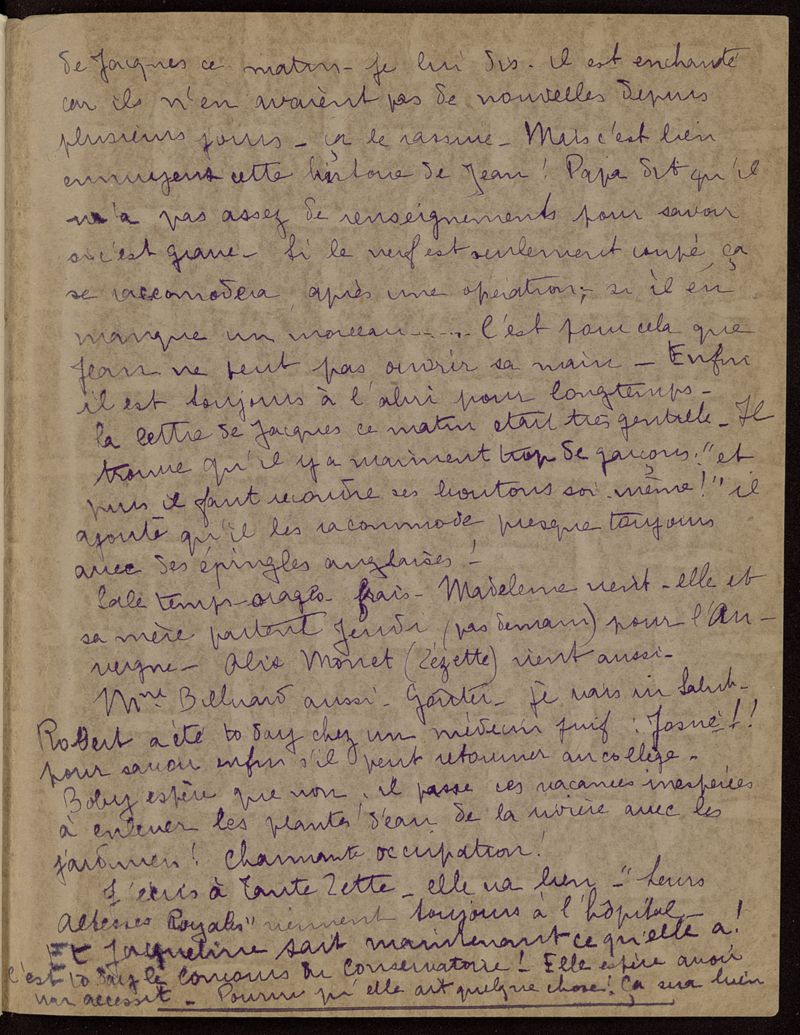 de Jacques ce matin - je lui dis. il est enchanté
car ils n'en avaient pas de nouvelles depuis
plusieurs jours - ça le rassure - Mais c'est bien
ennuyeux cette histoire de Jean ! Papa dit qu'il
n'a pas assez de renseignements pour savoir
si c'est grave - Si le nerf est seulement coupé ça
se raccomodera après une opération ; si il en
manque un morceau ..... C'est pour cela que
Jean ne peut pas ouvrir sa main - Enfin
il est toujours à l'abri pour longtemps -
La lettre de Jacques ce matin était très gentille - Il
trouve qu'il y a vraiment trop de garçons : "et
puis il faut recoudre ses boutons soi-même !" il
ajoute qu'il les racommode presque toujours
avec des épingles anglaises !
Sale temps - orages - frais - Madeleine vient - elle et
sa mère partent Jeudi (pas demain) pour l'Au-
vergne - Alis Monet (Zézette) vient aussi -
Mme Billuard aussi - Goûter - je vais au Salut -
Robert a été to day chez un médecin juif : Josué !!
pour savoir enfin s'il peut retourner au collège -
Boby espère que non, il passe ces vacances inespérées
à enlever les plantes d'eau de la rivière avec les
jardiniers ! Charmante occupation !
J'écris à Tante Zette - elle va bien - "Leurs
Altesses Royales" viennent toujours à l'hôpital -
Et Jacqueline sait maintenant ce qu'elle a !
C'est to day le Concours du Conservatoire ! Elle espère avoir
un accessit - Pourvu qu'elle ait quelque chose ! Ça sera bien